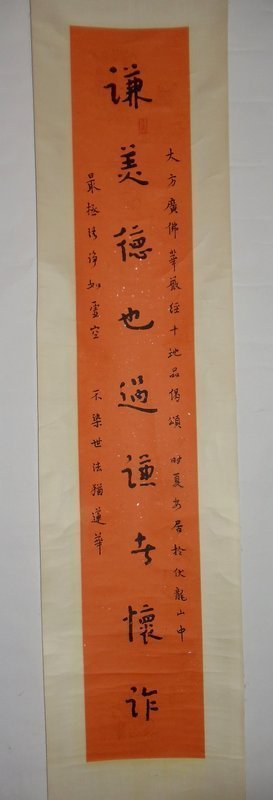 大方廣佛華嚴經十地品偈頌 時夏安居於伏龍山中
謙美德也過謙者懷詐
最極清淨如虛空 不染世法猶蓮華